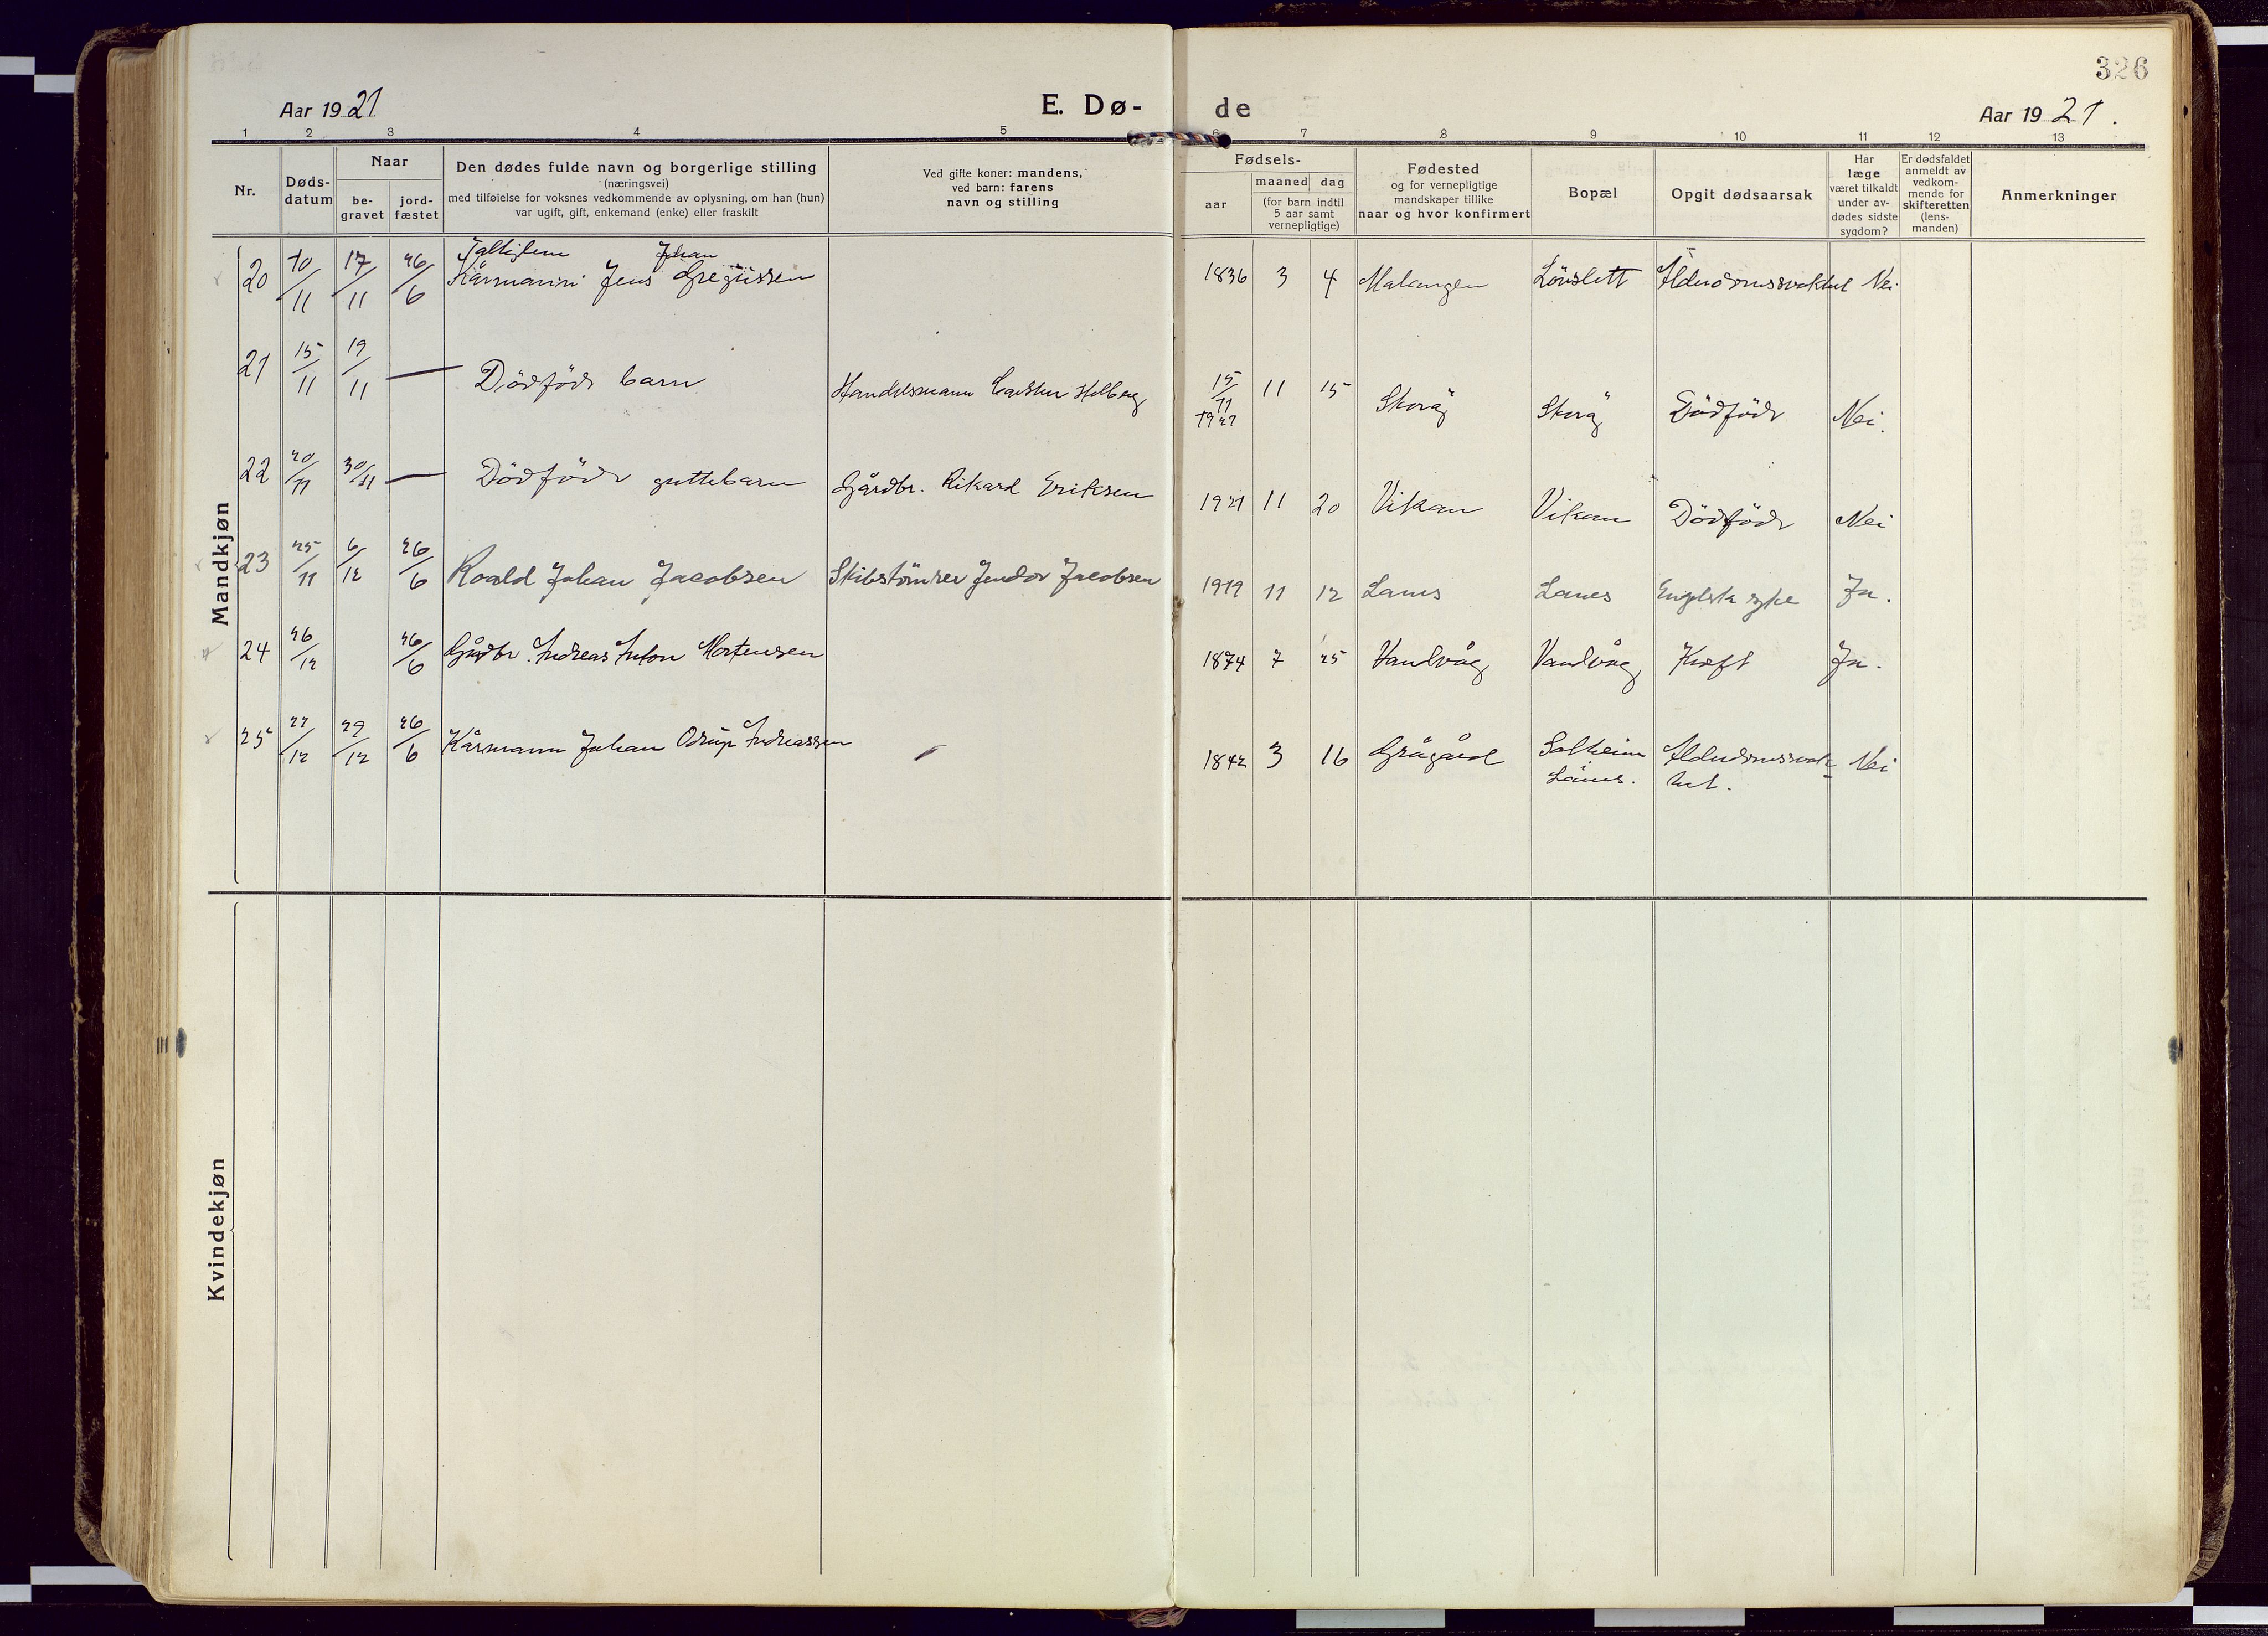 326
Aar 1921 E. Dø- de Aar 1921.
1 2 3 4 5 6 7 8 9 10 11 12 13
Nr.
Døds-
datum
Naar
be-
gravet
jord-
fæstet
Den dødes fulde navn og borgerlige stilling
(næringsvei)
med tilføielse for voksnes vedkommende av oplysning, om han (hun)
var ugift, gift, enkemand (enke) eller fraskilt
Ved gifte koner: mandens,
ved barn: farens
navn og stilling
Fødsels-
aar
maaned dag
(for barn indtil
5 aar samt
vernepligtige)
Fødested
og for vernepligtige
mandskaper tillike
naar og hvor konfirmert
Bopæl
Opgit dødsaarsak
Har
læge
været tilkaldt
under av-
dødes sidste
sygdom?
Er dødsfaldet
anmeldt av
vedkom-
mende for
skifteretten
(lens-
manden)
Anmerkninger
Mandkjøn
Johan
20 10/11 17/11 26/6 Kårmann Jens Gregussen 1836 3 4 Malangen Lönslett Nei
21 15/11 19/11 — Dödföd barn Handelsmann Carsten Holberg 15/11 1921 11 15 Skorå Skorå Dödföd Nei.
22 20/11 30/11 — Dödföd guttebarn Gårdbr. Rikard Eriksen 1921 11 20 Vikan Vikan Dödföd Nei
23 25/11 6/12 26/6 Roald Johan Jacobsen Skibstömrer Jendor Jacobsen 1919 11 12 Lanes Lanes Engelsk syke Ja.
24 26/12 26/6 Gårdbr. Andreas Anton Mortensen 1874 7 25 Vandvåg Vandvåg Kræft Ja.
25 27/12 29/12 26/6 Kårmann Johan Odrup Andreassen — 1842 3 16 Grågård Solheim Alderdomssvak- Nei
Lanes. het.
Kvindekjøn